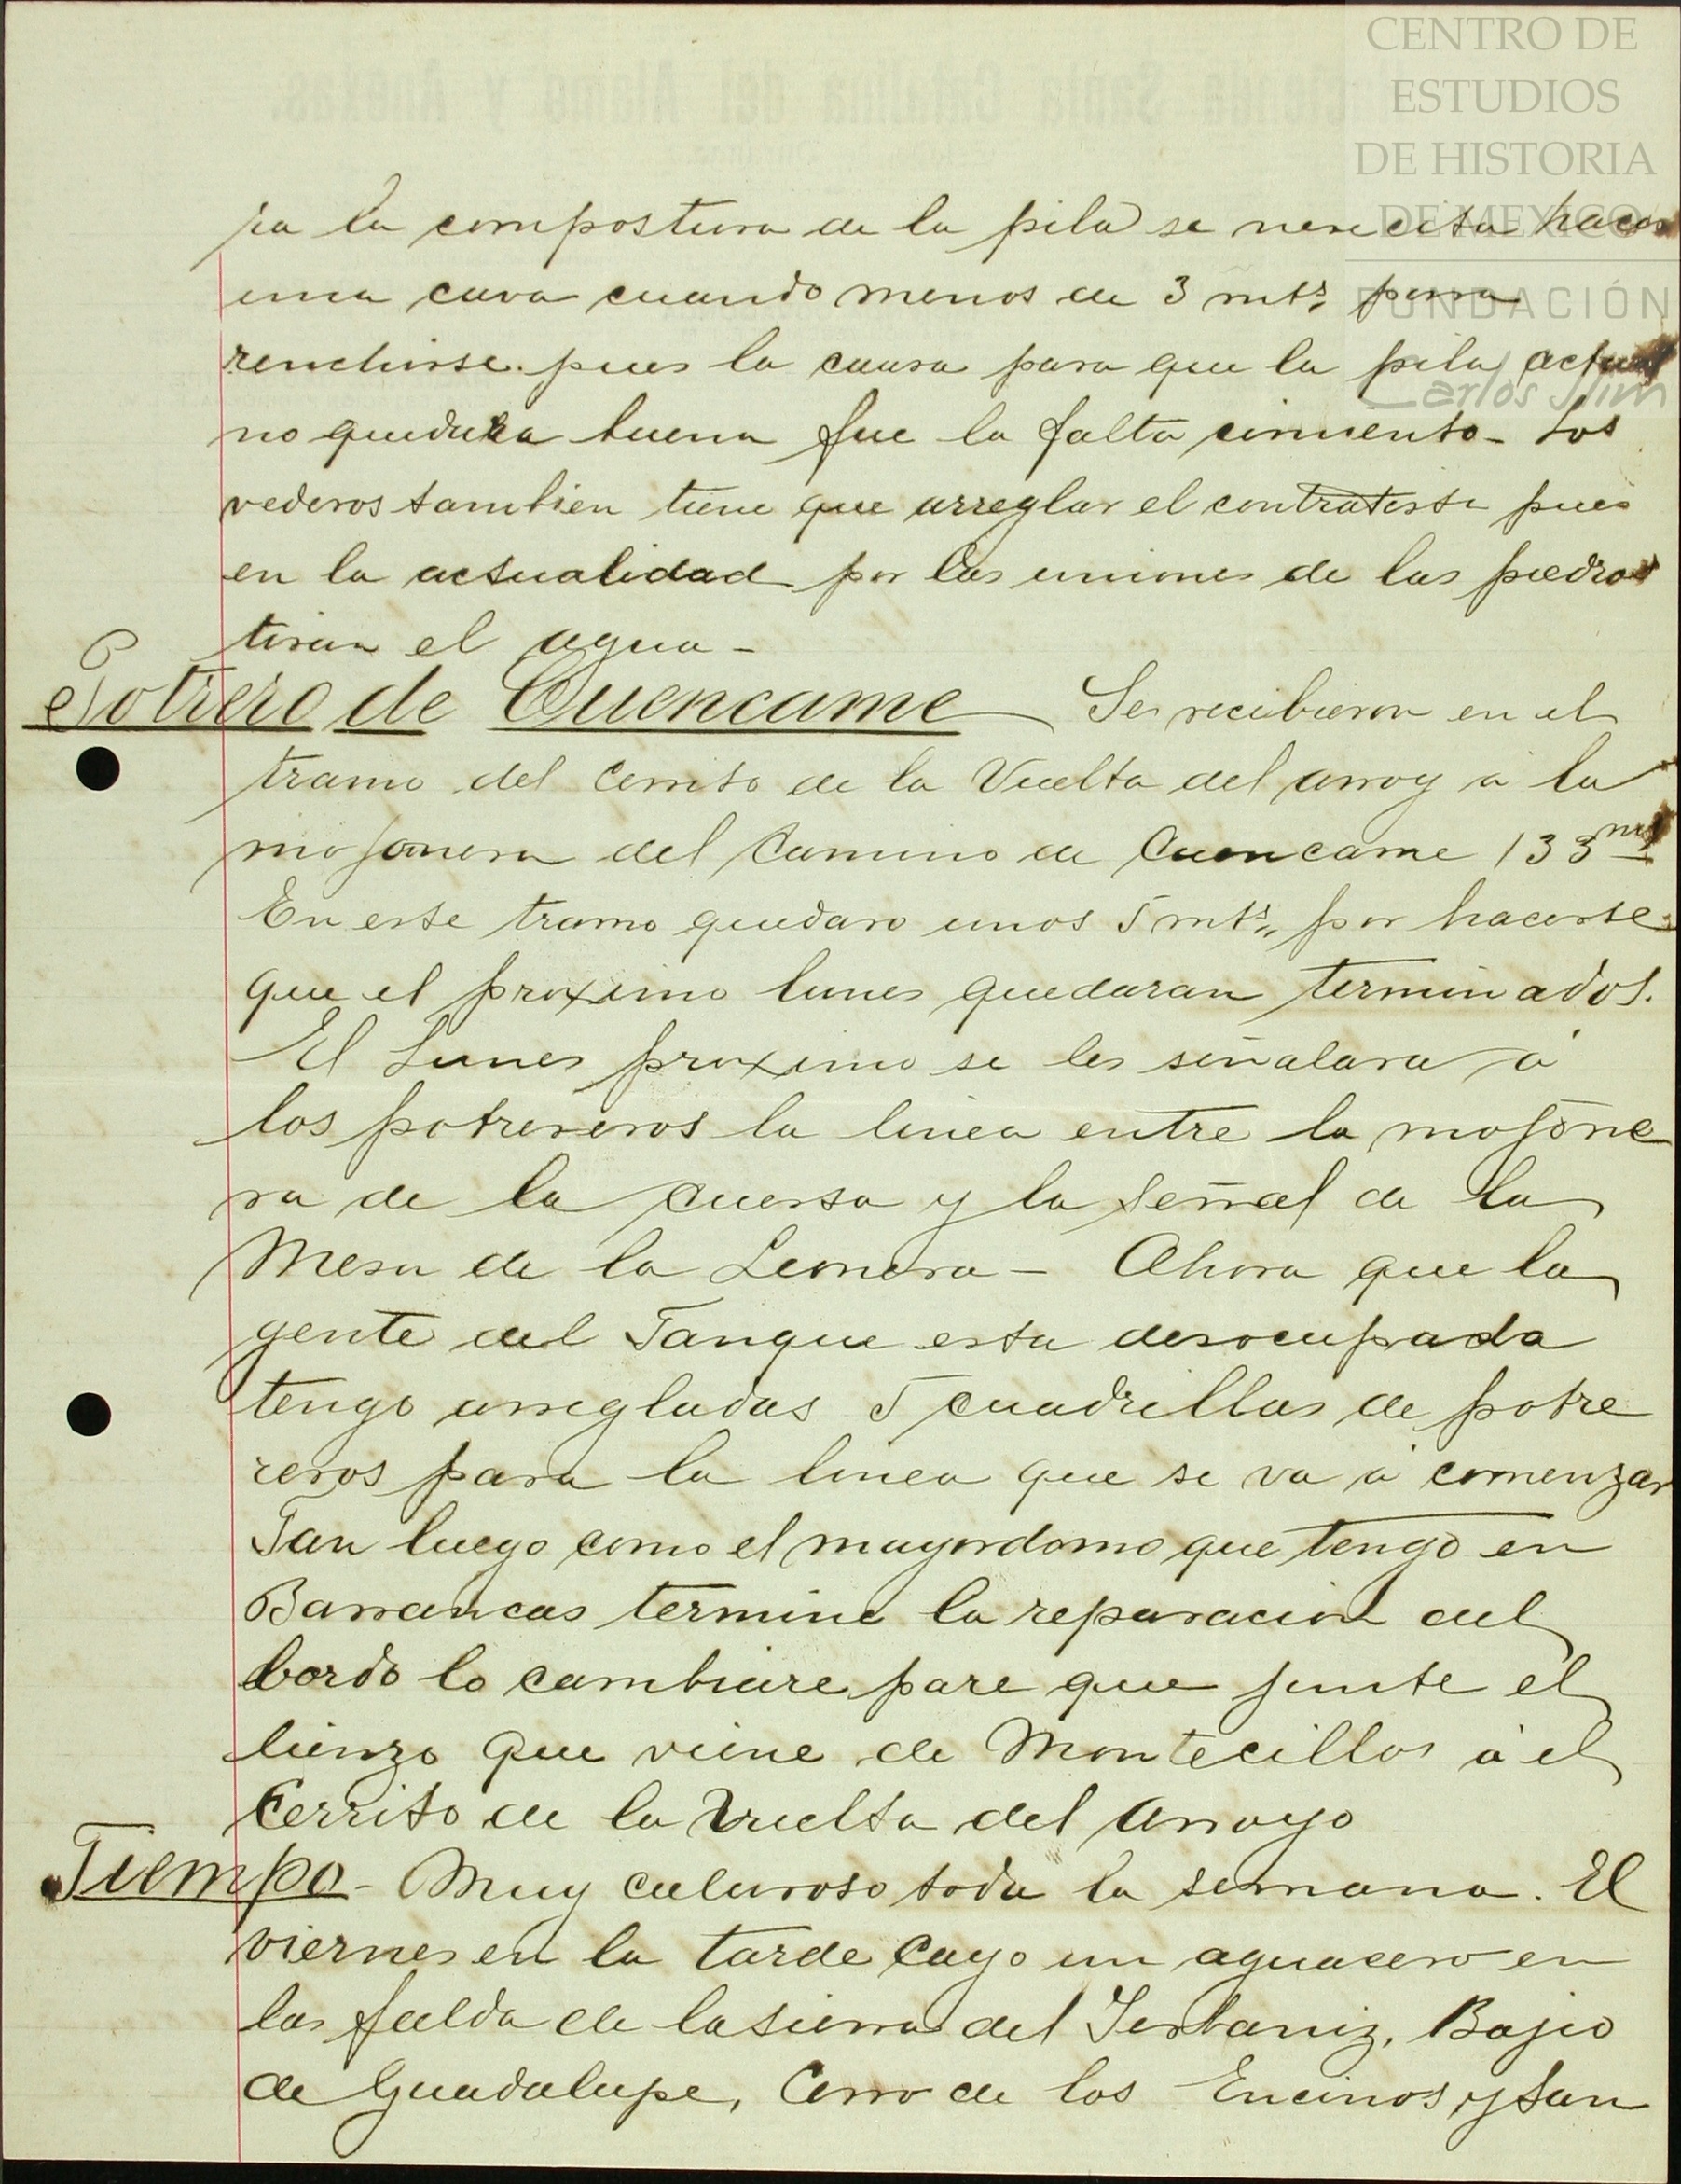 CENTRO DE
ESTUDIOS
DE HISTORIA
DE MEXICO
FUNDACIÓN
Carlos Slim
ra la compostura de la pila se nececita hacer
una cava cuando menos de 3 mts, para
renchirse. pues la causa para que la pila actual
no quedara buena fue la falta cimiento_ Los
vederos tambien tiene que arreglar el contratista pues
en la actualidad por las uniones de las piedras
tiran el agua_
Potrero de Cuencame Se recibieron en el
tramo del Cerrito de la Vuelta del arroy a la
mojonera del Camino de Cuencame 133 mts
En este tramo quedaro unos 5 mts,, por hacerse
que el proximo lunes quedaran terminados.
El Lunes proximo se les señalara á
los potrereros la linea entre la mojone
ra de la cuesta y la Señal de la
Mesa de la Leonera_ Ahora que la
gente del Tanque esta desocupada
tengo arregladas 5 cuadrillas de potre
reros para la linea que se va á comenzar
Tan luego como el mayordomo que tengo en
Barrancas termine la reparacion del
bordo lo cambiare pare que junte el
lienzo que viene de Montecillos á el
Cerrito de la Vuelta del Arroyo
Tiempo_ Muy caluroso toda la semana. El
viernes en la tarde cayo un aguacero en
las falda de la sierra del Yerbaniz, Bajio
de Guadalupe, Cerro de los Encinos y San